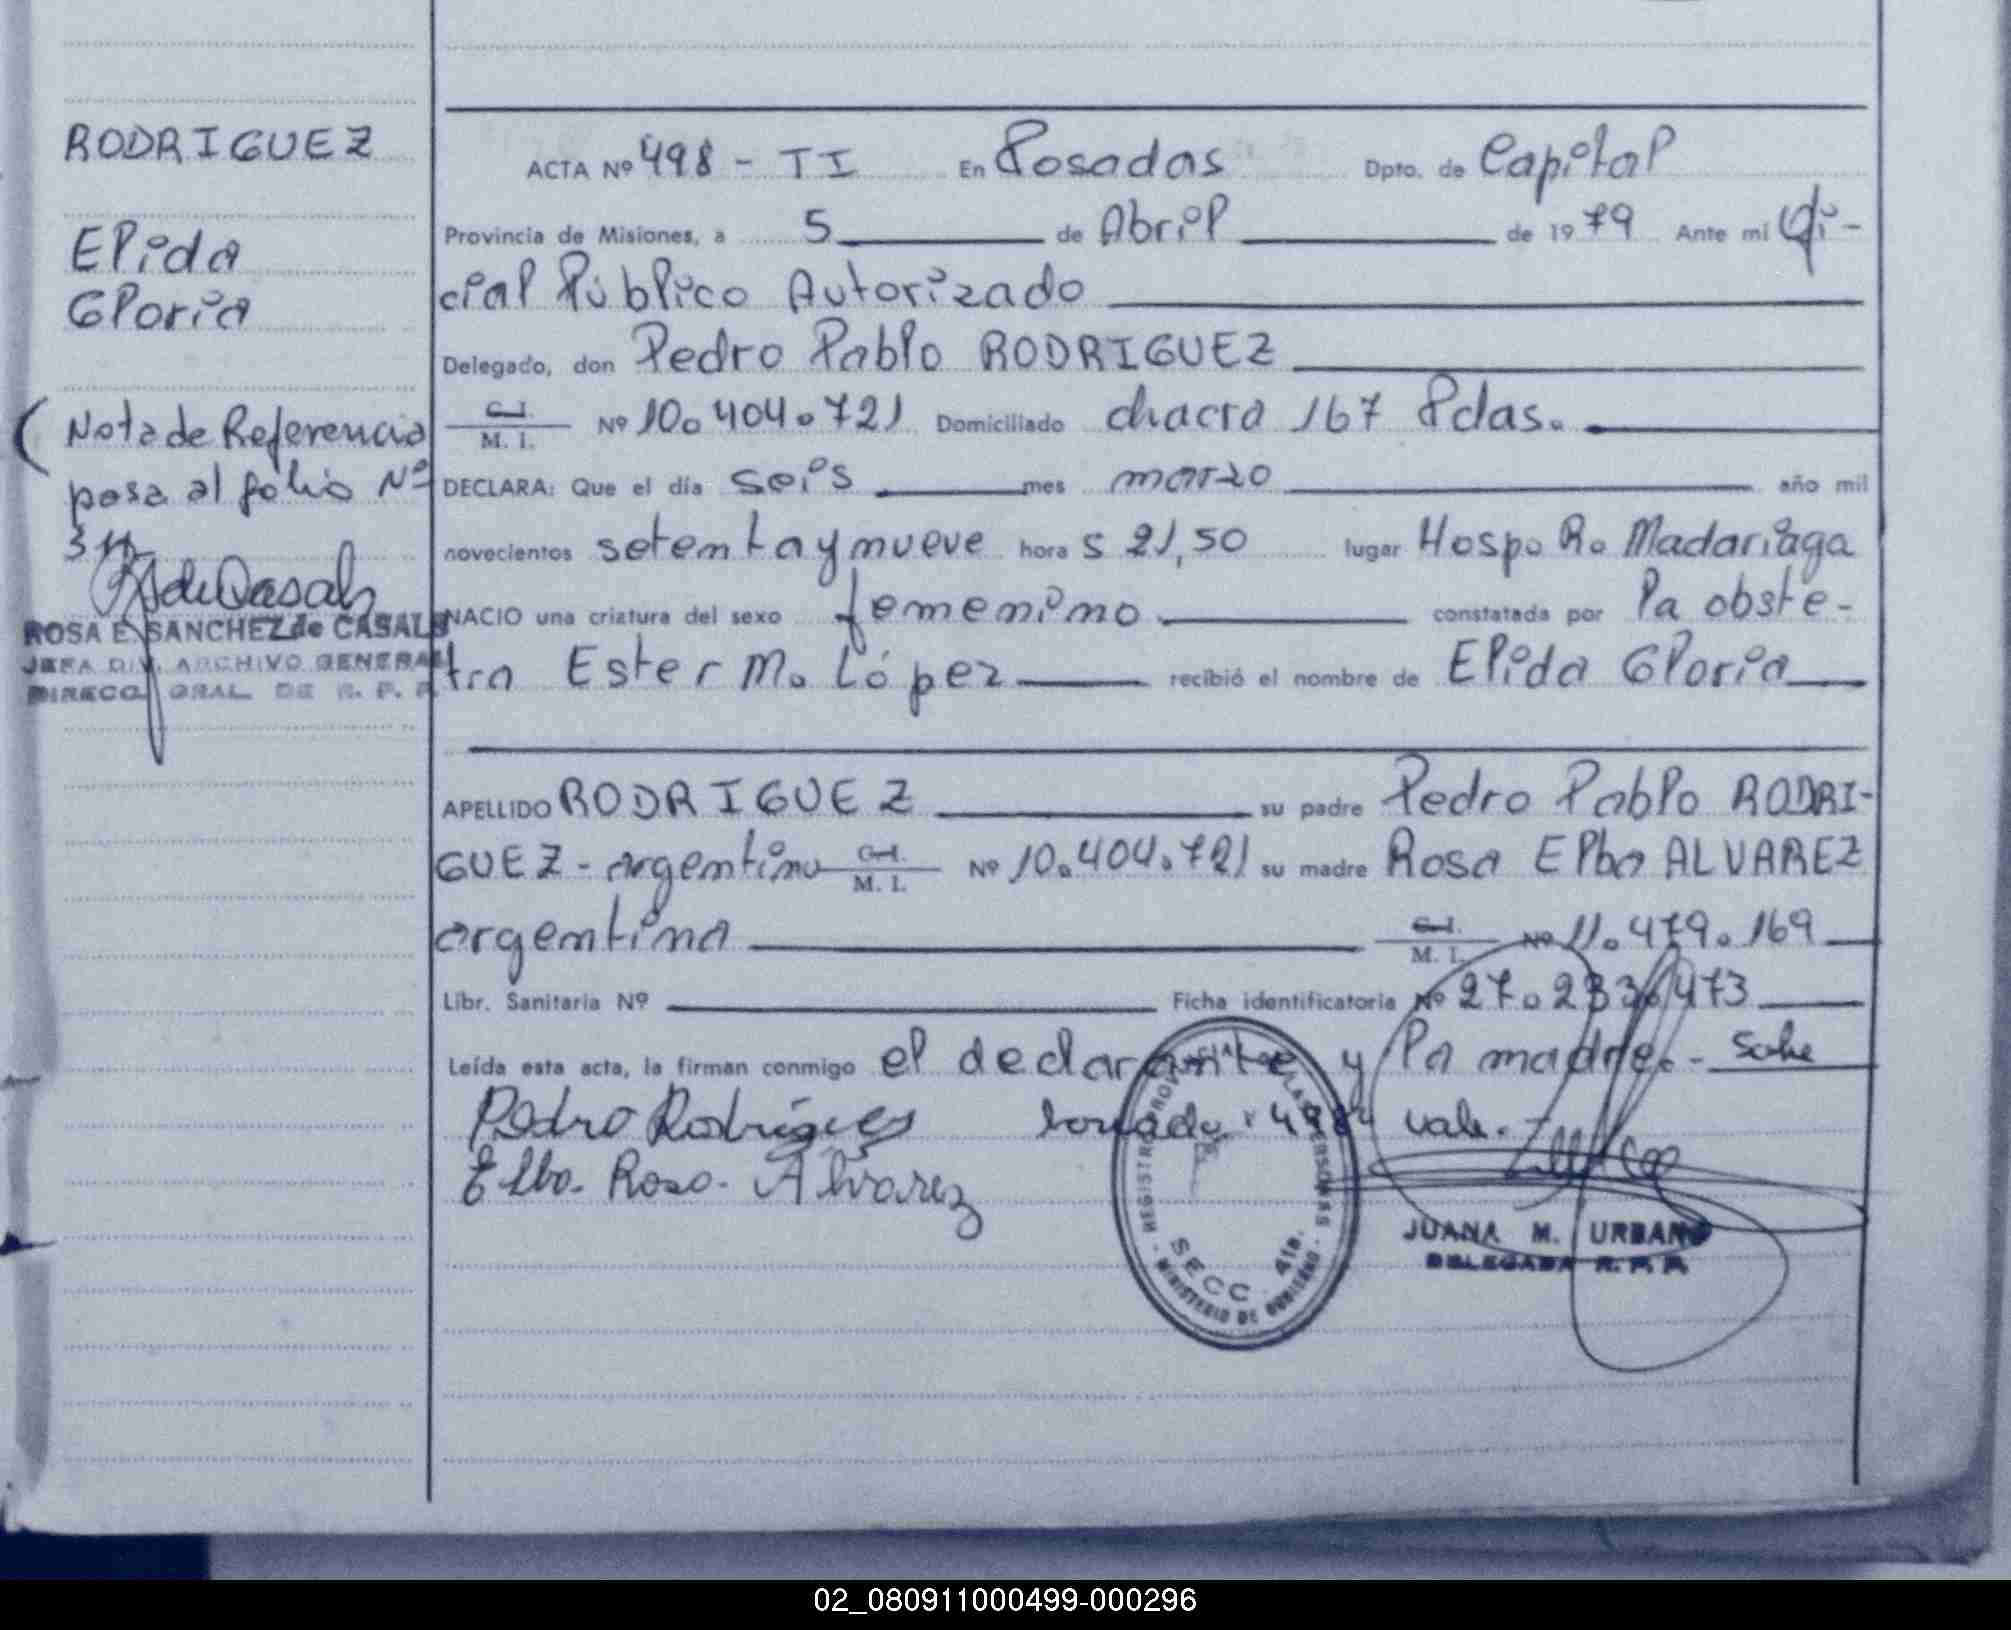 RODRIGUEZ
Elida
Gloria
(Nota de Referencia
pasa al folio Nº
ROSA E. SANCHEZ de CASALS
JEFA DIV. ARCHIVO GENERAL
DIRECC. GRAL. DE R. P. P.
ACTA Nº 498 - TI En Posadas Dpto. de Capital
Provincia de Misiones, a 5 de Abril de 1979 Ante mi Ofi-
cial Público Autorizado
Delegado, don Pedro Pablo RODRIGUEZ
C. I. / M. I. Nº 10.404.721 Domiciliado chacra 167 Pdas.
DECLARA: Que el día seis mes marzo año mil
novecientos setenta y nueve hora s 21,50 lugar Hosp. R. Madariaga
NACIO una criatura del sexo femenino constatada por la obste-
tra Ester M. López recibió el nombre de Elida Gloria
APELLIDO RODRIGUEZ su padre Pedro Pablo RODRI-
GUEZ - argentino C. I. / M. I. Nº 10.404.721 su madre Rosa Elba ALVAREZ
argentina C. I. / M. I. Nº 11.479.169
Libr. Sanitaria Nº Ficha identificatoria Nº 27.233.473
Leída esta acta, la firman conmigo el declarante y la madre.- Sobre
Pedro Rodrígues borrado: "498" vale.-
Elba. Rosa. Alvarez
REGISTRO PROVINCIAL DE LAS PERSONAS
SECC. 4ta.
MINISTERIO DE GOBIERNO
JUANA M. URBANO
DELEGADA R. P. P.
02_080911000499-000296